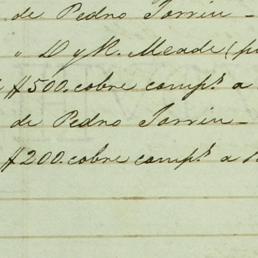 de Pedro Jorrin -
" D y R. Meade (p
$500. cobre comp.s a
de Pedro Jorrin -
$200. cobre comp.s a